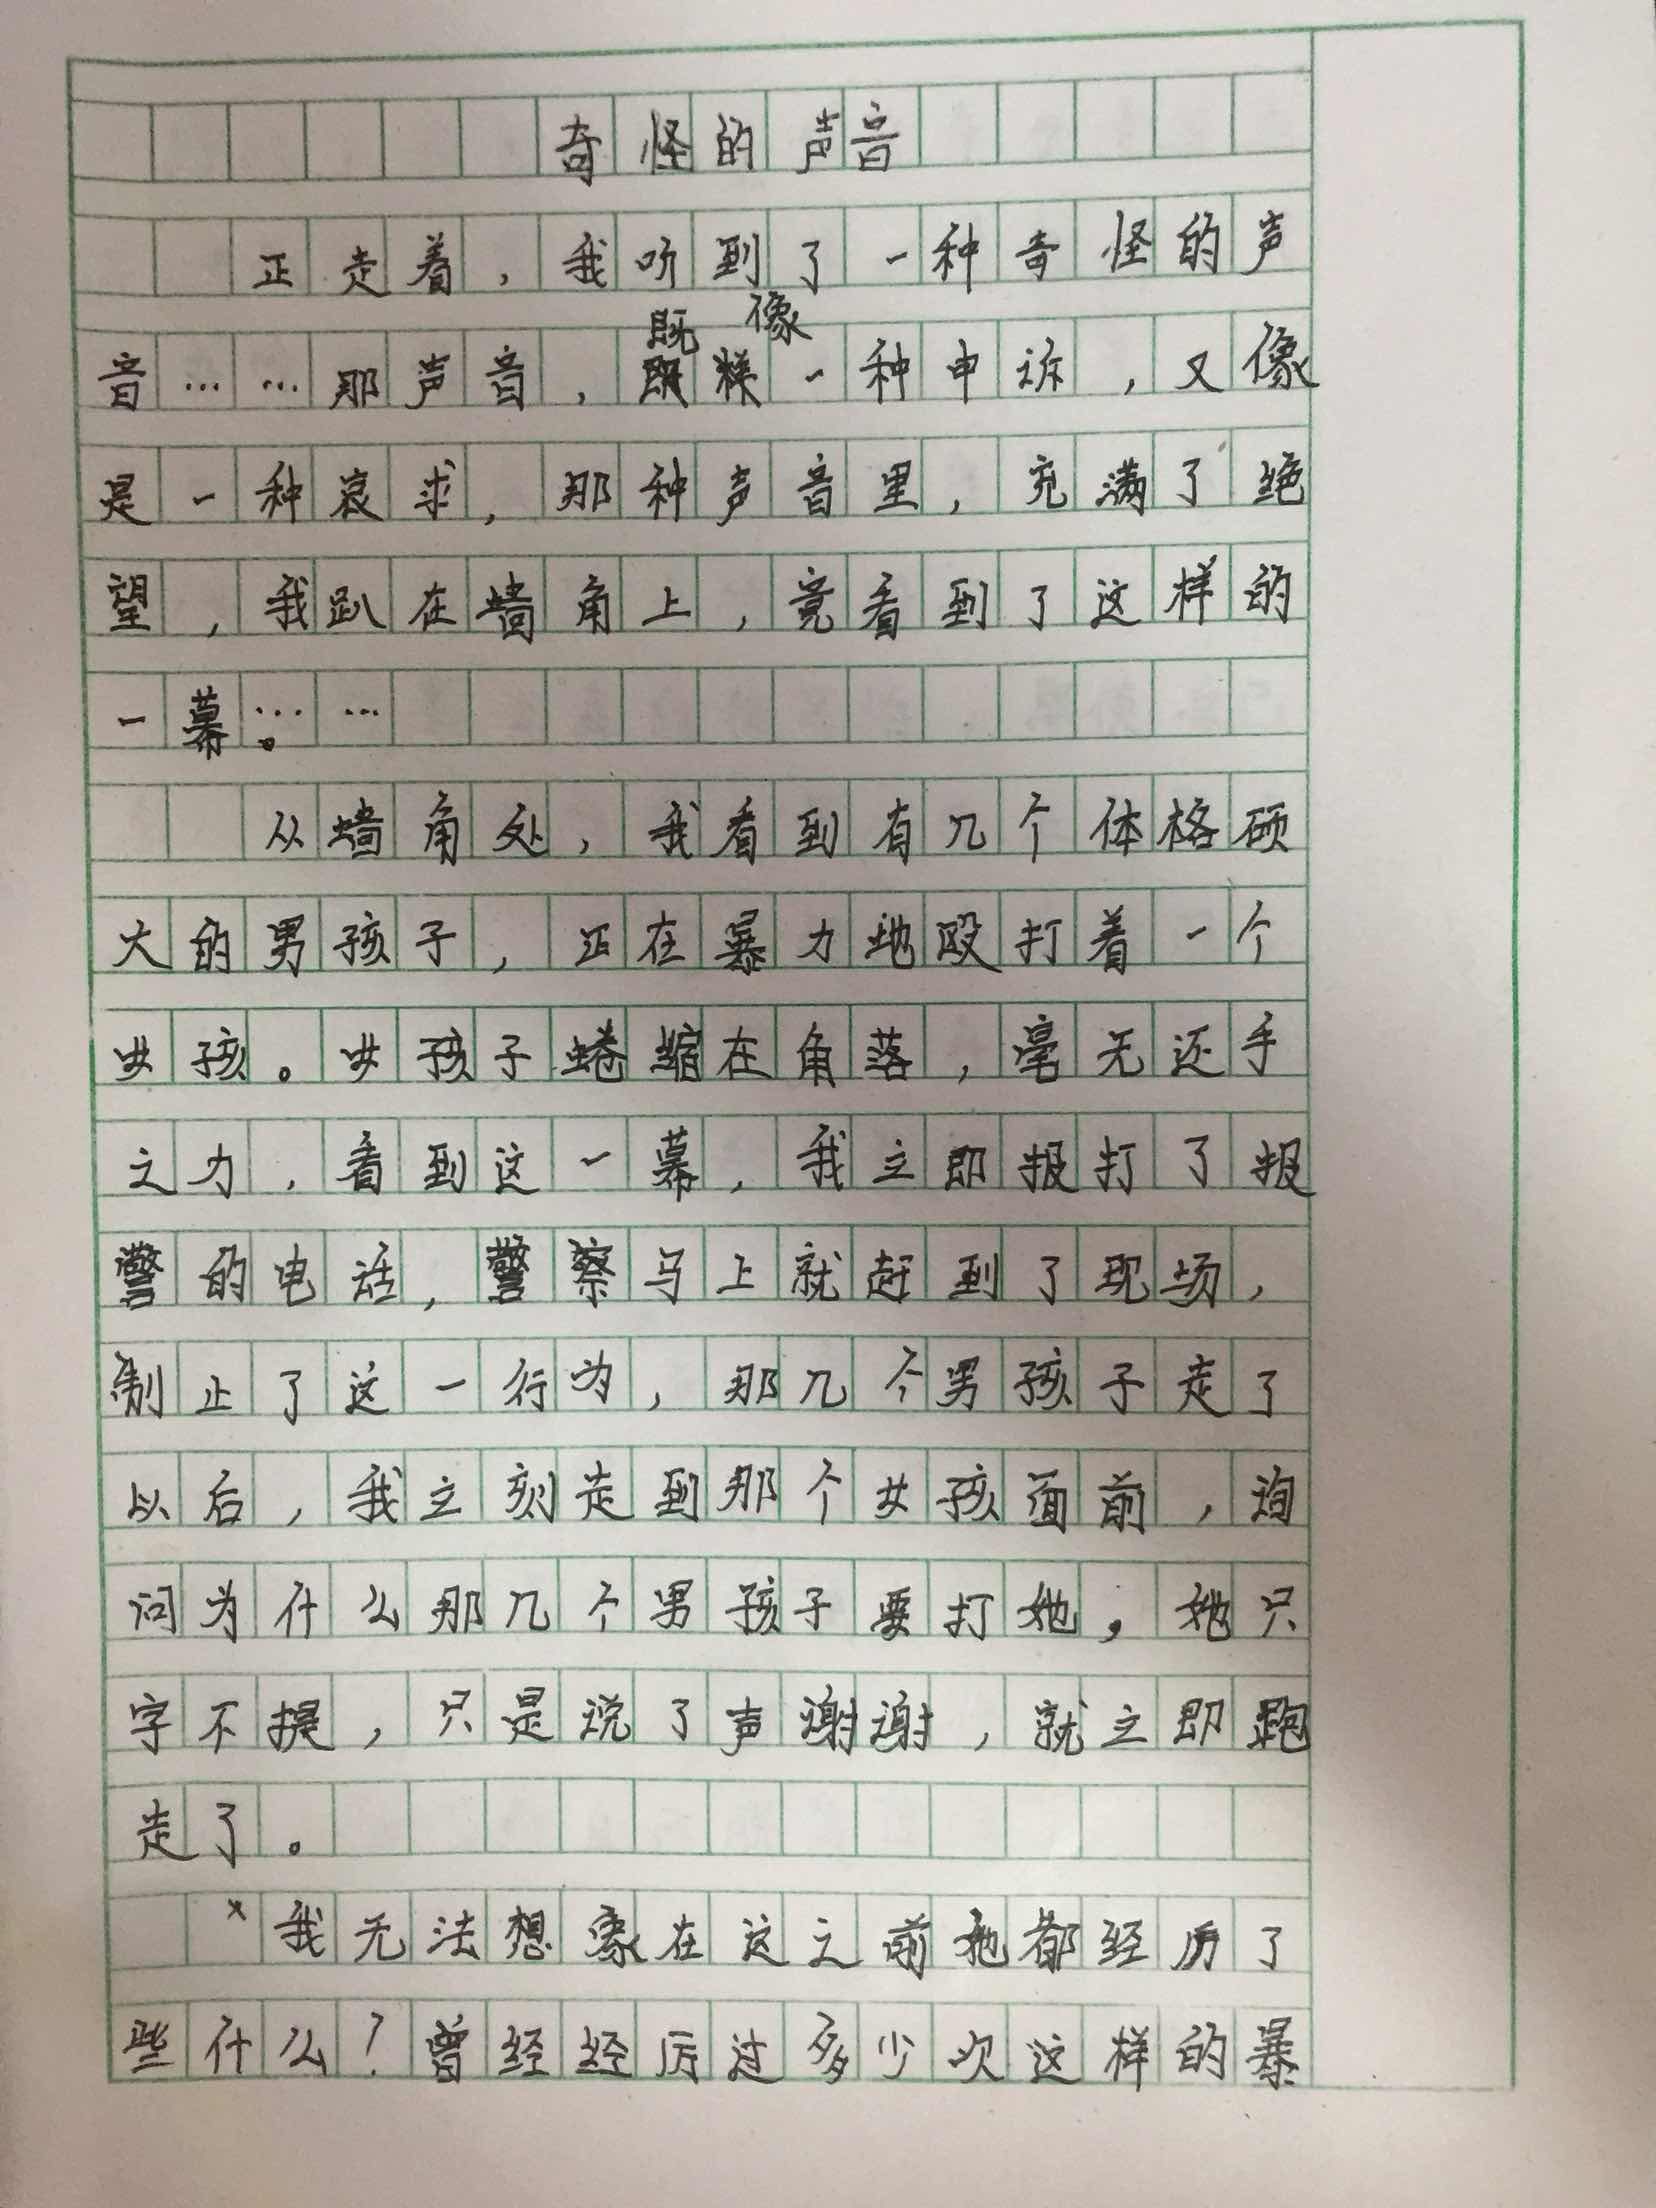 奇怪的声音
正走着，我听到了一种奇怪的声
既像
音……那声音，既样一种申诉，又像
是一种哀求，那种声音里，充满了绝
望，我趴在墙角上，竟看到了这样的
一幕……。
从墙角处，我看到有几个体格硕
大的男孩子，正在暴力地殴打着一个
女孩。女孩子蜷缩在角落，毫无还手
之力，看到这一幕，我立即报打了报
警的电话，警察马上就赶到了现场，
制止了这一行为，那几个男孩子走了
以后，我立刻走到那个女孩面前，询
问为什么那几个男孩子要打她，她只
字不提，只是说了声谢谢，就立即跑
走了。
×我无法想象在这之前她都经历了
些什么？曾经经历过多少次这样的暴